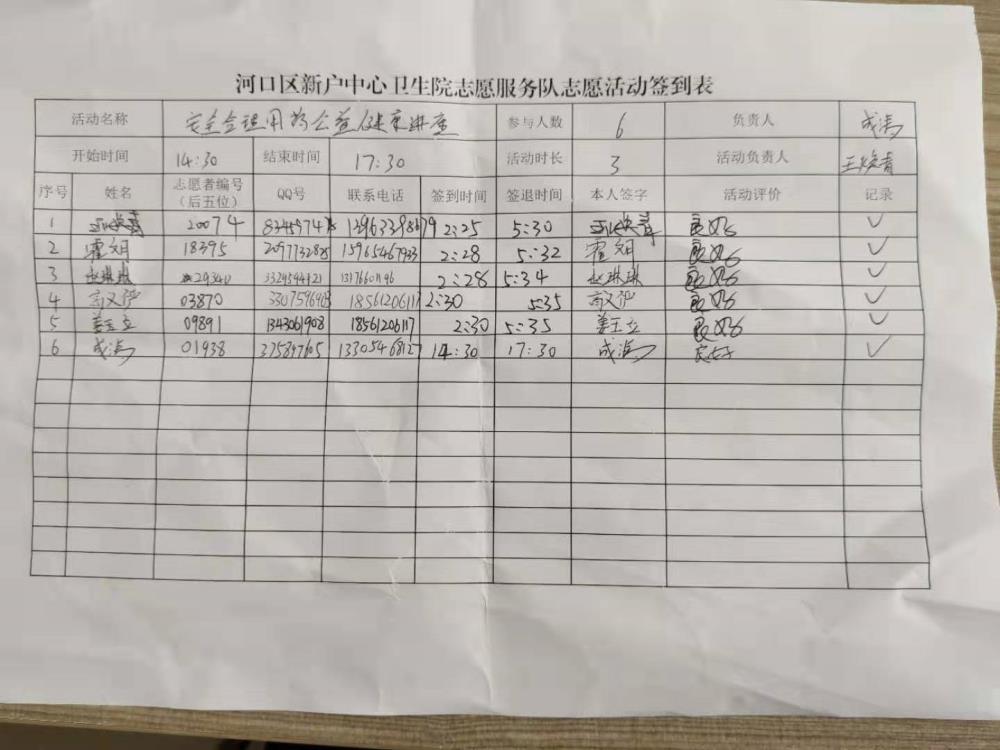 河口区新户中心卫生院志愿服务队志愿活动签到表
活动名称 安全合理用药公益健康讲座 参与人数 6 负责人 成涛
开始时间 14:30 结束时间 17:30 活动时长 3 活动负责人 王焕青
序号 姓名 志愿者编号（后五位） QQ号 联系电话 签到时间 签退时间 本人签字 活动评价 记录
1 20074 2:25 5:30 良好 ✓
2 霍明 18395 15965467933 2:28 5:32 霍明 良好 ✓
3 赵琳琳 29340 2:28 5:34 赵琳琳 良好 ✓
4 03870 18561206117 2:30 5:35 良好 ✓
5 姜玉立 09891 1343061908 18561206117 2:30 5:35 姜玉立 良好 ✓
6 成涛 01938 13305468127 14:30 17:30 成涛 良好 ✓